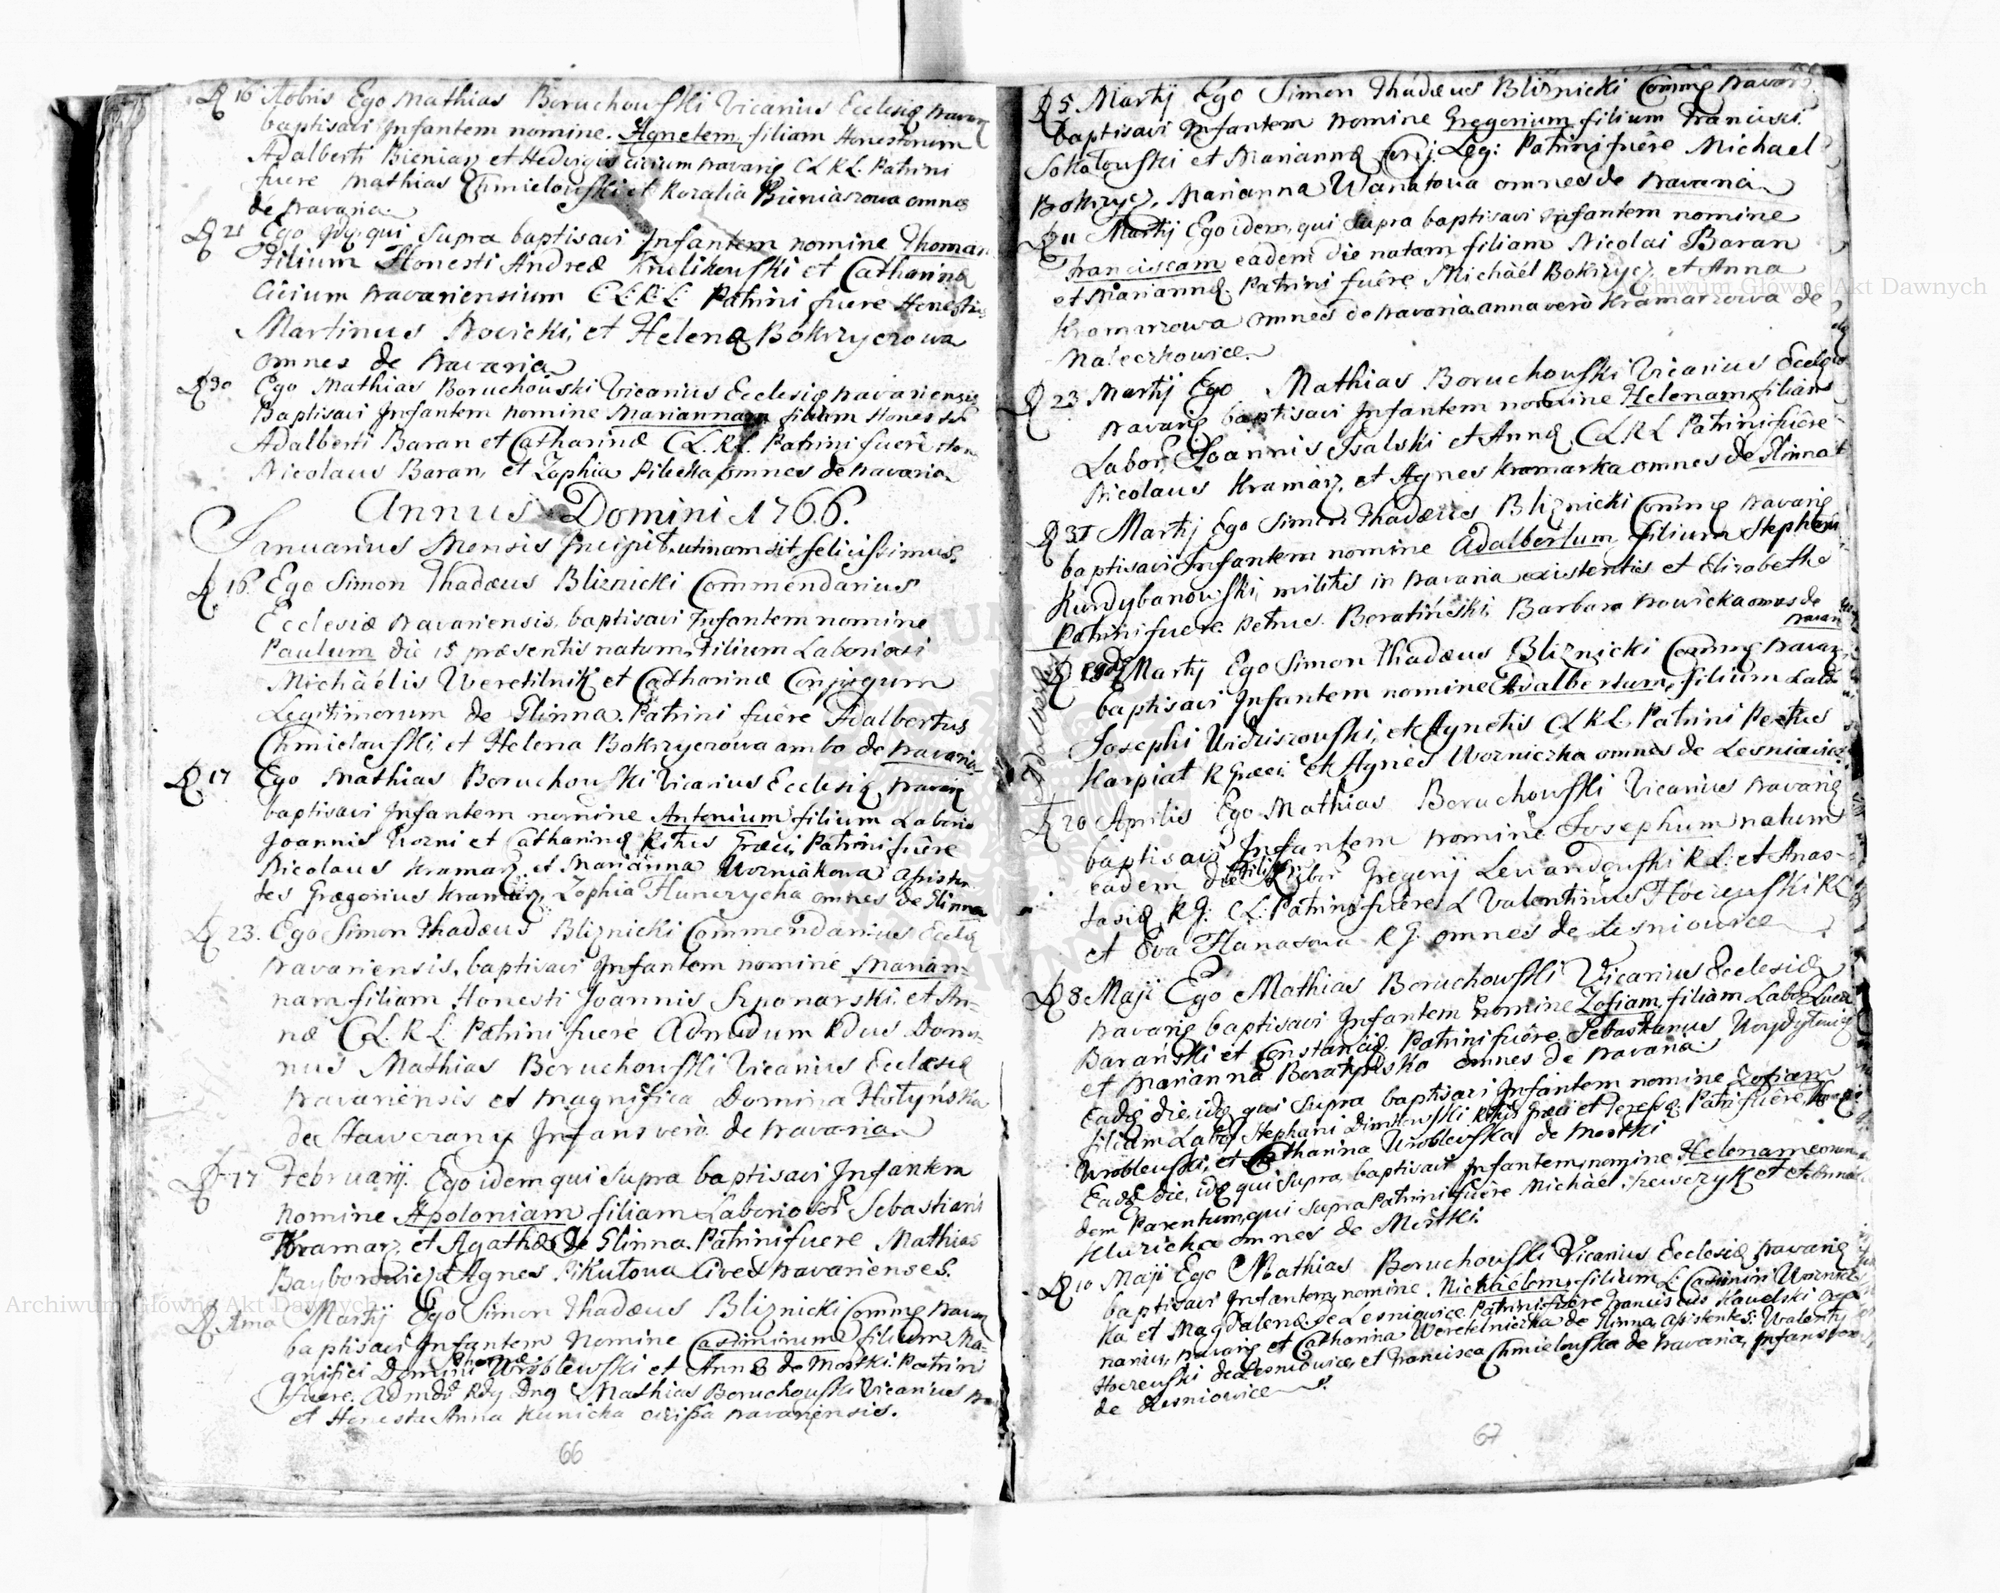 D 16 Xbris Ego Mathias Boruchowski Vicarius Ecclesiæ Navar
baptisavi Infantem nomine. Agnetem, filiam Honestorum
Adalberti Bieniasz et Hedvigis Civium Navariæ C L R L. Patrini
fuere Mathias Chmielowski et Rozalia Bieniaszowa omnes
de Navaria
D 21 Ego Idem qui supra baptisavi Infantem nomine Thomam
Filium Honesti Andreæ Krulikowski et Catharinæ
Civium Navariensium C: L: R: L: Patrini fuere Honesti
Martinus Nowicki, et Helena Bokrzyczowa
omnes de Navaria
D 30 Ego Mathias Boruchowski Vicarius Ecclesiæ Navariensis
Baptisavi Infantem nomine Mariannam filiam Honesti
Adalberti Baran et Catharinæ C L. R L. Patrini fuere Hon
Nicolaus Baran, et Zophia Pilecka omnes de Navaria
Annus Domini 1766.
Januarius Mensis Incipit, utinam sit felicissimus.
D 16. Ego Simon Thadæus Bliznicki Commendarius
Ecclesiæ Navariensis, baptisavi Infantem nomine
Paulum die 15 præsentis natum, Filium Laboriosi
Michaëlis Weretilnik et Catharinæ Conjugum
Legitimorum de Glinna. Patrini fuêre Adalbertus
Chmielowski, et Helena Bokrzyczowa ambo de Navaria
D 17 Ego Mathias Boruchowski Vicarius Ecclesiæ Navariæ
baptisavi Infantem nomine Antonium filium Laborio
Joannis Wozni et Catharinæ Ritus Græci, Patrini fuêre
Nicolaus Kramarz, et Marianna Wozniakowa Assisten
tes Græegorius Kramarz, Zophia Hunczycha omnes de Glinna
D 23. Ego Simon Thadæus Bliznicki Commendarius Eccle
Navariensis, baptisavi Infantem nomine Marian-
nam filiam Honesti Joannis Szponarski, et An-
næ C L. R L: Patrini fuere Admodum Rdus Domi-
nus Mathias Boruchowski Vicarius Ecclesiæ
Navariensis et Magnifica Domina Hołyńska
de Hawczany Infans verò de Navaria
D 17 Februarij. Ego idem qui supra baptisavi Infantem
nomine Apoloniam filiam Laborioso Sebastiani
Kramarz, et Agathæ de Glinna. Patrini fuere Mathias
Bayborowicz et Agnes Pikułowa Cives Navarienses.
D 4ma Martij Ego Simon Thadæus Bliznicki Comme Navar
baptisavi Infantem Nomine Casimirum filium Ma-
gnifici Domini Wroblewski et Annæ de Mostki. Patrini
fuere. Admdu Rdu Dng Mathias Boruchowski Vicarius
et Honesta Anna Kunicka civissa Navariensis.
66
D 5. Martij Ego Simon Thadæus Bliznicki Comme Navar
baptisavi Infantem Nomine Gregorium filium Francisci
Sokołowski et Mariannæ Conj: Leg: Patrini fuêre Michael
Bokrzycz, Marianna Wanatowa omnes de Navaria
D 11 Martij Ego idem, qui supra baptisavi Infantem nomine
Franciscam eadem die natam filiam Nicolai Baran
et Mariannæ. Patrini fuêre Michäel Bokrzycz, et Anna
Kramarzowa omnes de Navaria anna verò Kramarzowa de
Małeczkowice.
D 23 Martij Ego Mathias Boruchowski Vicarius Eccle
Navariæ baptisavi Infantem nomine Helenam filiam
Labor. Joannis Psalski et Annæ, C L R L Patrini fuêre
Nicolaus Kramarz, et Agnes Kramarka omnes de Glinna
D 31 Martij Ego Simon Thadæus Bliznicki Comme Navariæ
baptisavi Infantem nomine Adalbertum filium Stephani
Kurdybanowski, militis in Navaria existentis et Elizabethæ
Patrini fuere Petrus Beratiński Barbara Nowicka omnes de
Navar
Adalbertus
D Martij Ego Simon Thadæus Bliznicki Comme Navar
baptisavi Infantem nomine Adalbertum, filium Labo
Josephi Widziszowski, et Agnetis C L R L Patrini Petrus
Karpiak R Græci et Agnes Wozniczka omnes de Lesniowice
D 20 Aprilis Ego Mathias Boruchowski Vicarius Navariæ
baptisavi Infantem nomine Josephum natum
eadem die filium Labor Gregorij Lewandowski R L: et Anas-
tasiæ R G: C L: Patrini fuêre L Valentinus Hoczewski R L
et Eva Hanasowa R G. omnes de Lesniowice
D 8 Maji Ego Mathias Boruchowski Vicarius Ecclesiæ
Navariæ baptisavi Infantem nomine Zofiam, filiam Labor Lucæ
Barański et Constanciæ Patrini fuêre Sebastianus
et Marianna omnes de Navaria.
Eadē die, idē qui supra baptisavi Infantem nomine Zofiam
filiam Labor Stephani Dimkowski Ritus Græci et Teresæ Patri fuêre
Wroblewski, et Catharina Wroblewska de Mostki
Eadē die, idē qui supra baptisavi Infantem, nomine Helenam eorun-
dem Parentum, qui supra Patrini fuêre Michäel Szewczyk et Anna
Kluzicka omnes de Mostki.
D 10 Maji Ego Mathias Boruchowski Vicarius Ecclesiæ Navariæ
baptisavi Infantem nomine. Michäelem, filium L: Casimiri Woznic
ka et Magdalenæ de Lesniowice. Patrini fuêre Franciscus Kawelski Orga
narius, Navariæ et Catharina Weretelniczka de Glinna, Assistentes: Walenty
Hoczewski de Lesniowice, et Francisca Chmielowska de Navaria, Infans vero
de Lesniowice
67
Archiwum Główne Akt Dawnych
Archiwum Główne Akt Dawnych